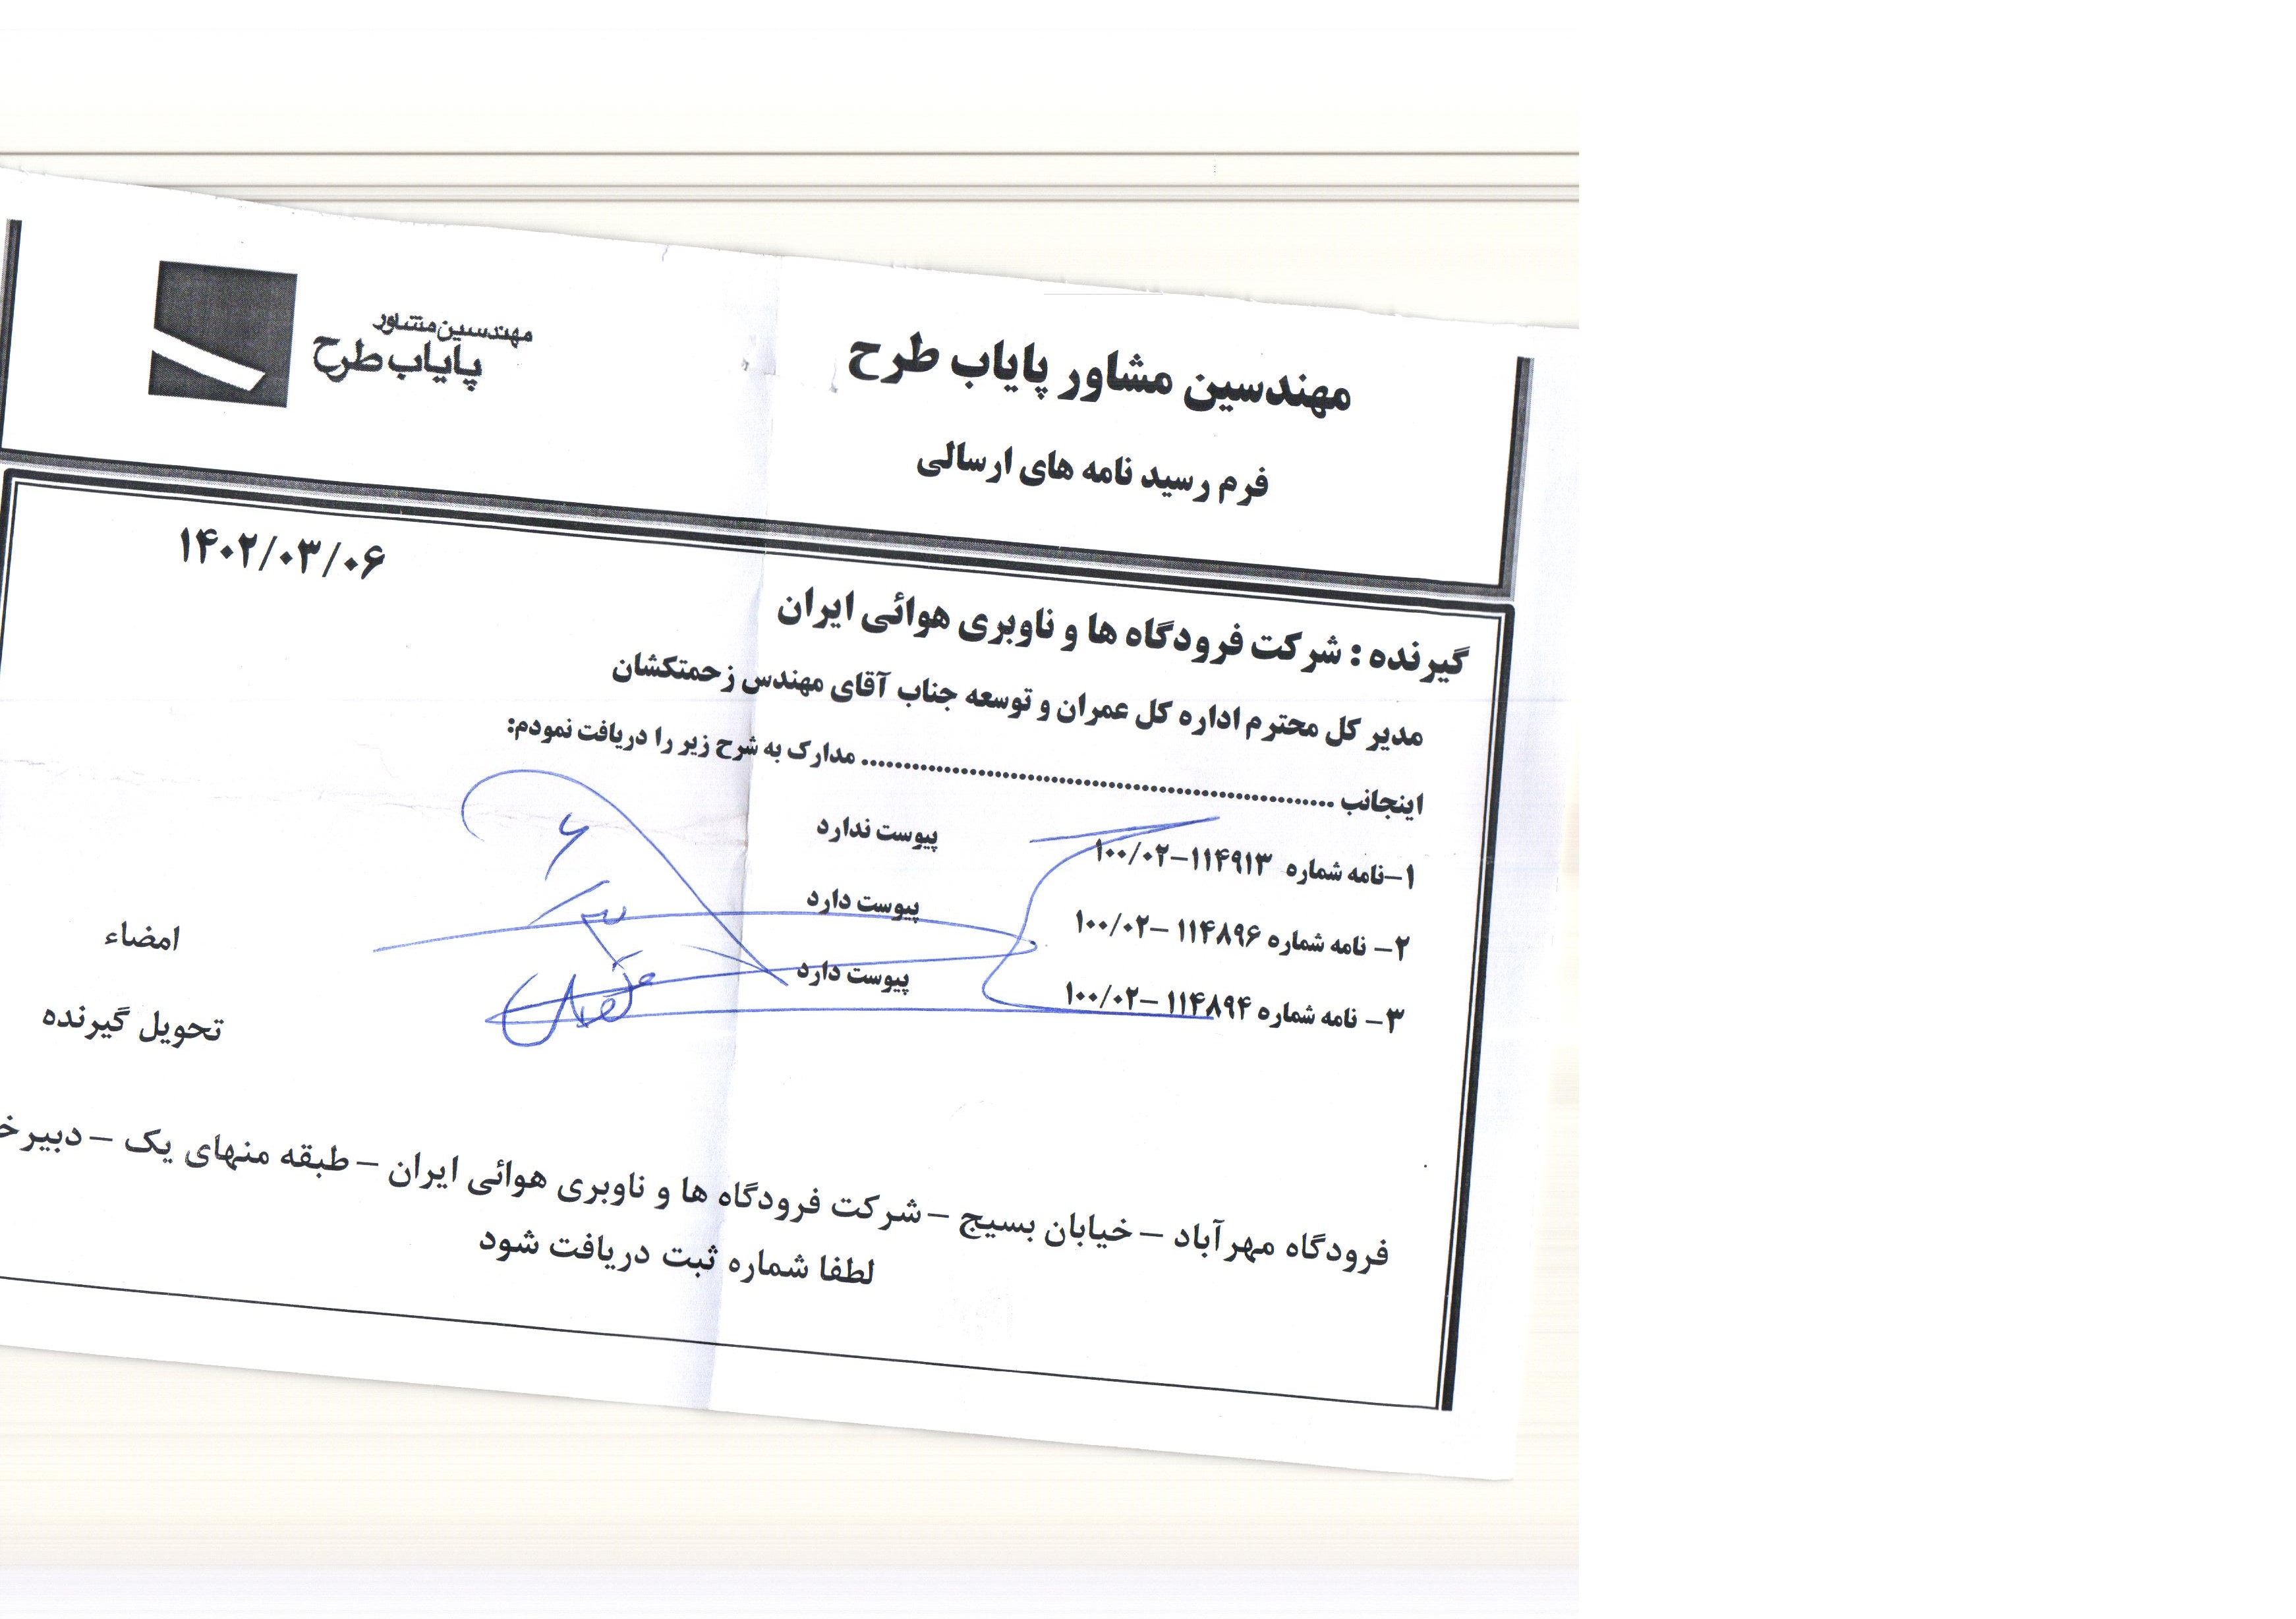 مهندسین مشاور
پایاب طرح
مهندسین مشاور پایاب طرح
فرم رسید نامه های ارسالی
۱۴۰۲/۰۳/۰۶
گیرنده : شرکت فرودگاه ها و ناوبری هوائی ایران
مدیر کل محترم اداره کل عمران و توسعه جناب آقای مهندس زحمتکشان
اینجانب ............................................................ مدارک به شرح زیر را دریافت نمودم:
۱-نامه شماره ۱۱۴۹۱۳-۱۰۰/۰۲ پیوست ندارد
۲- نامه شماره ۱۱۴۸۹۶ -۱۰۰/۰۲ پیوست دارد
۳- نامه شماره ۱۱۴۸۹۴ -۱۰۰/۰۲ پیوست دارد
امضاء
تحویل گیرنده
فرودگاه مهرآباد – خیابان بسیج – شرکت فرودگاه ها و ناوبری هوائی ایران – طبقه منهای یک – دبیرخ
لطفا شماره ثبت دریافت شود